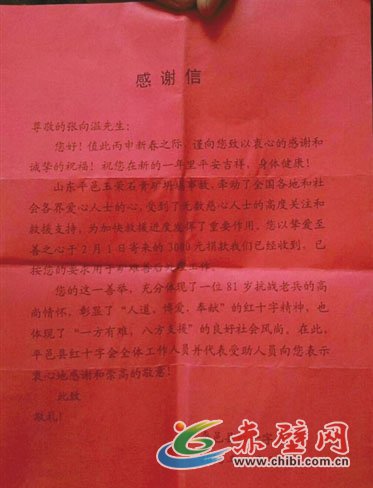 感谢信
尊敬的张向温先生：
您好！值此丙申新春之际，谨向您致以衷心的感谢和
诚挚的祝福！祝您在新的一年里平安吉祥，身体健康！
山东平邑玉荣石膏矿坍塌事故，牵动了全国各地和社
会各界爱心人士的心，受到了无数慈心人士的高度关注和
救援支持，为加快救援进度发挥了重要作用。您以挚爱至
善之心于2月1日寄来的3000元捐款我们已经收到，已
按您的要求用于矿难善后工作。
您的这一善举，充分体现了一位81岁抗战老兵的高
尚情怀，彰显了“人道，博爱，奉献”的红十字精神，也
体现了“一方有难，八方支援”的良好社会风尚。在此，
平邑县红十字会全体工作人员并代表受助人员向您表示
衷心地感谢和崇高的敬意！
此致
敬礼！
邑
赤壁网
www.chibi.com.cn